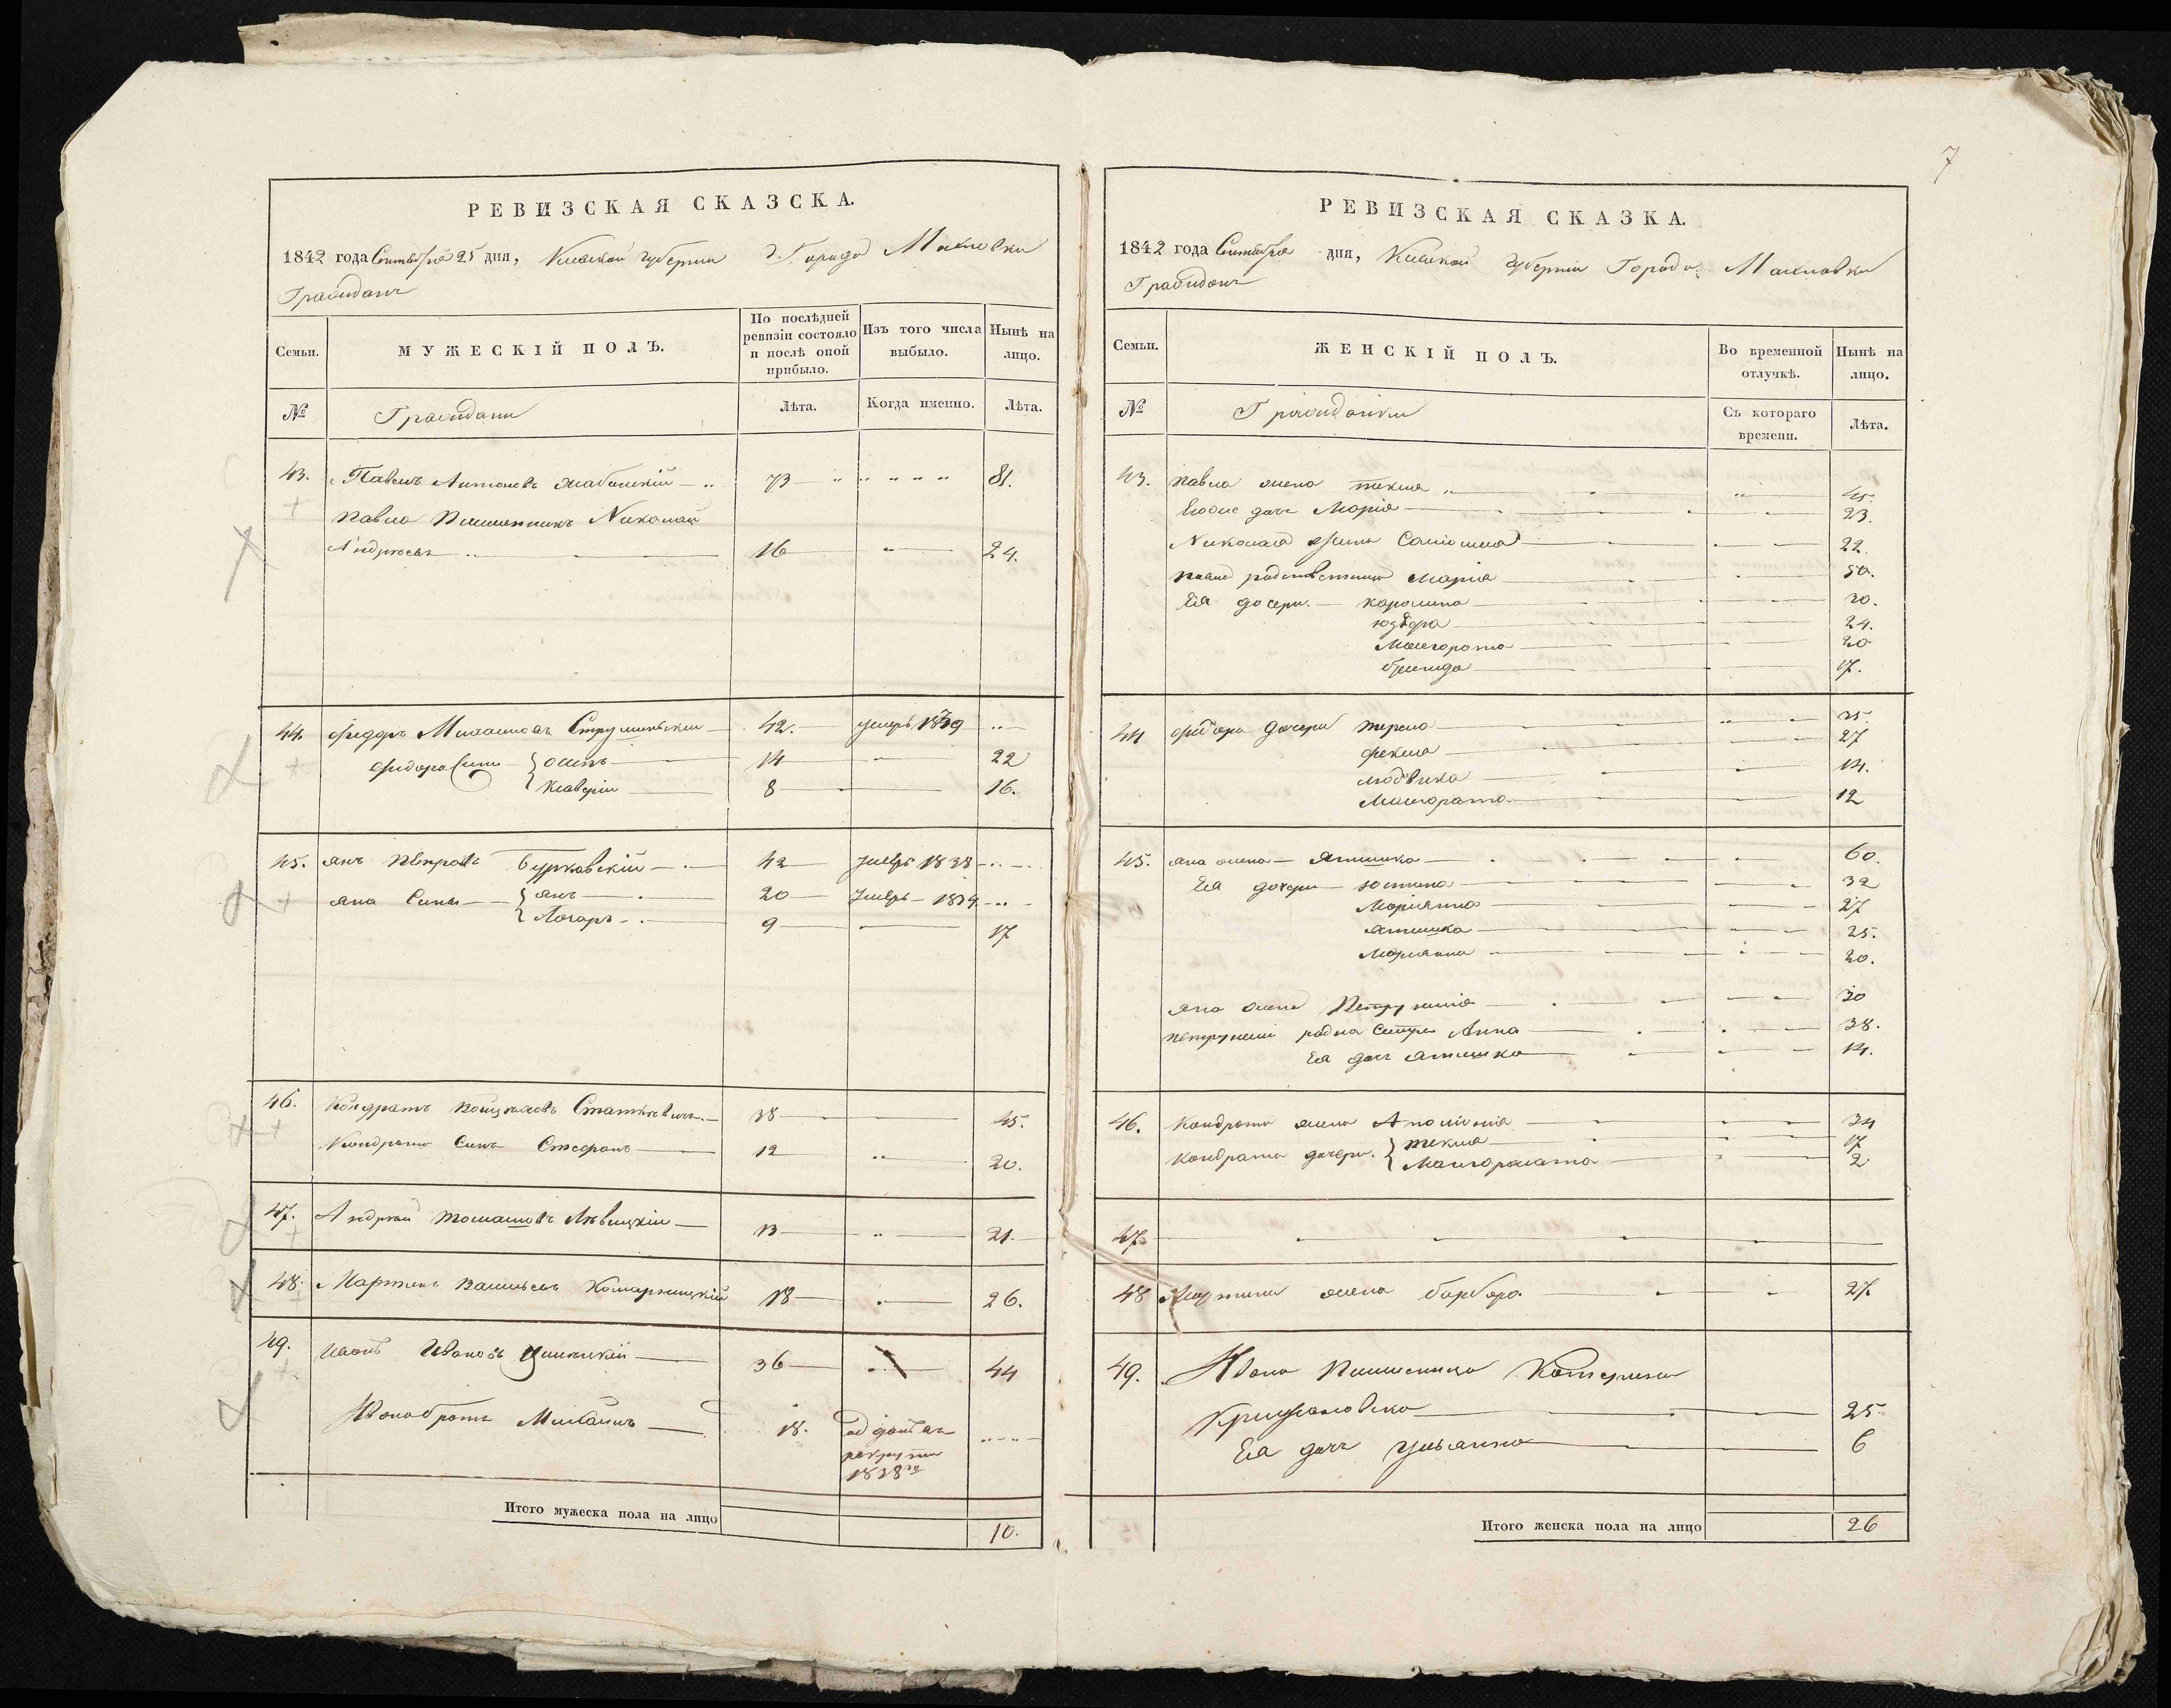 7
РЕВИЗСКАЯ СКАЗСКА.
1842 года Сентября 25 дня, Киевской губернии Города Махновки
Граждан
Семьи.
МУЖЕСКІЙ ПОЛЪ.
По послѣдней ревизіи состояло и послѣ оной прибыло.
Изъ того числа выбыло.
Нынѣ на лицо.
№
Граждани
Лѣта.
Когда именно.
Лѣта.
43. Павелъ Антоновъ 73 81.
Павла Племенникъ Николай
Андреевъ 16 24.
44. Федоръ 42. умеръ 1839
Федора Сыни Осипъ 14 22
Ксаверій 8 16.
45. Янъ Петровъ Бурковскій 42 умеръ 1838
Яна Сины Янъ 20 умеръ 1839
9 17
46. Кондратъ 38 45.
Кондрата Синъ Стефанъ 12 20.
47. Андрей Томашовъ 13 21.
48. Мартинъ Комарницкій 18 26.
49. Иванъ Ивановъ 36 44
Ивана братъ Михайлъ 18. отданъ въ
рекрути
1838го
Итого мужеска пола на лицо 10.
РЕВИЗСКАЯ СКАЗКА.
1842 года Сентября дня, Киевской губерніи Города Махновки
Граждан
Семьи.
ЖЕНСКІЙ ПОЛЪ.
Во временной отлучкѣ.
Нынѣ на лицо.
№
Гражданки
Съ котораго времени.
Лѣта.
43. Павла жена Текля 45.
дочь Марія 23.
Николая жена Саломия 22.
Павла родственница Марія 50.
Ея дочери Каролина 30.
24.
Малгората 20
Бригида 17.
44 Федора Дочери Тереса 35.
Фекла 27
Людвика 14.
Малгората 12
45. Яна жена Агнишка 60.
Ея дочери Юстина 32
Маріянна 27
Агнишка 25.
Маріянна 20.
Яна жена Петрунеля 30
Петрунели родна сестра Анна 38.
Ея дочь Агнишка 14.
46. Кондрата жена Аполонія 34
Кондрата дочери Текля 17
2
47
48 Мартина жена Барбара 27
49. Ивана Племенница Катерина
25
Ея дочь Ульянна 6
Итого женска пола на лицо 26